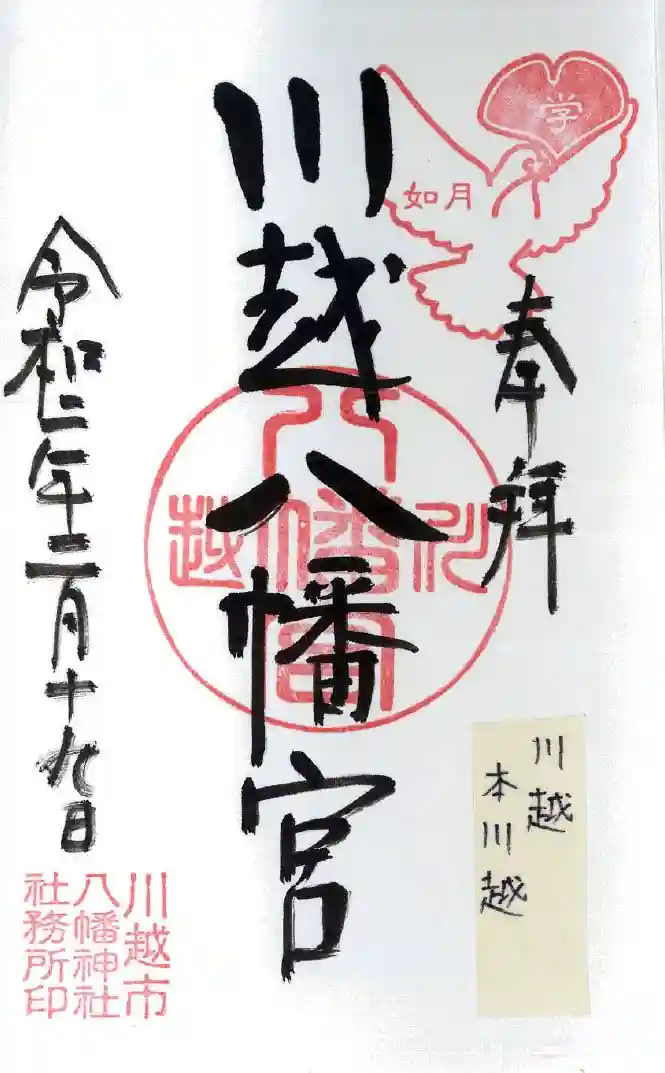 学
如月
奉拝
川越八幡宮
八幡宮
川越
令和二年二月十九日
川越市
八幡神社
社務所印
川越
本川越